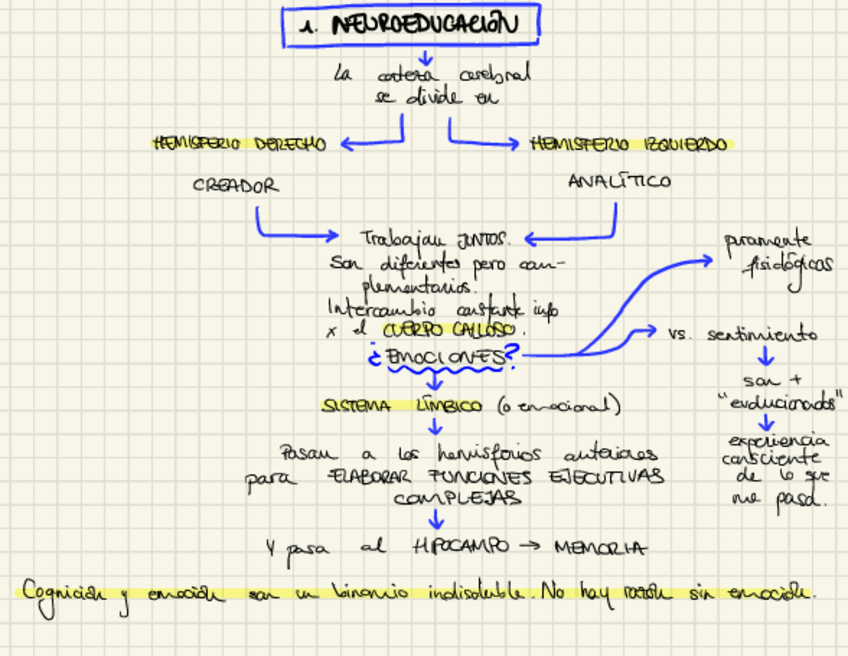 1. NEUROEDUCACIÓN
La corteza cerebral
se divide en
HEMISFERIO DERECHO
HEMISFERIO IZQUIERDO
CREADOR
ANALÍTICO
Trabajan JUNTOS.
Son diferentes pero com-
plementarios.
Intercambio constante info
x el CUERPO CALLOSO.
¿EMOCIONES?
puramente
fisiológicas
vs. sentimiento
son +
"evolucionados"
experiencia
consciente
de lo que
me pasa.
SISTEMA LÍMBICO (o emocional)
Pasan a los hemisferios anteriores
para ELABORAR FUNCIONES EJECUTIVAS
COMPLEJAS
Y pasa al HIPOCAMPO → MEMORIA
Cognición y emoción son un binomio indisoluble. No hay razón sin emoción.